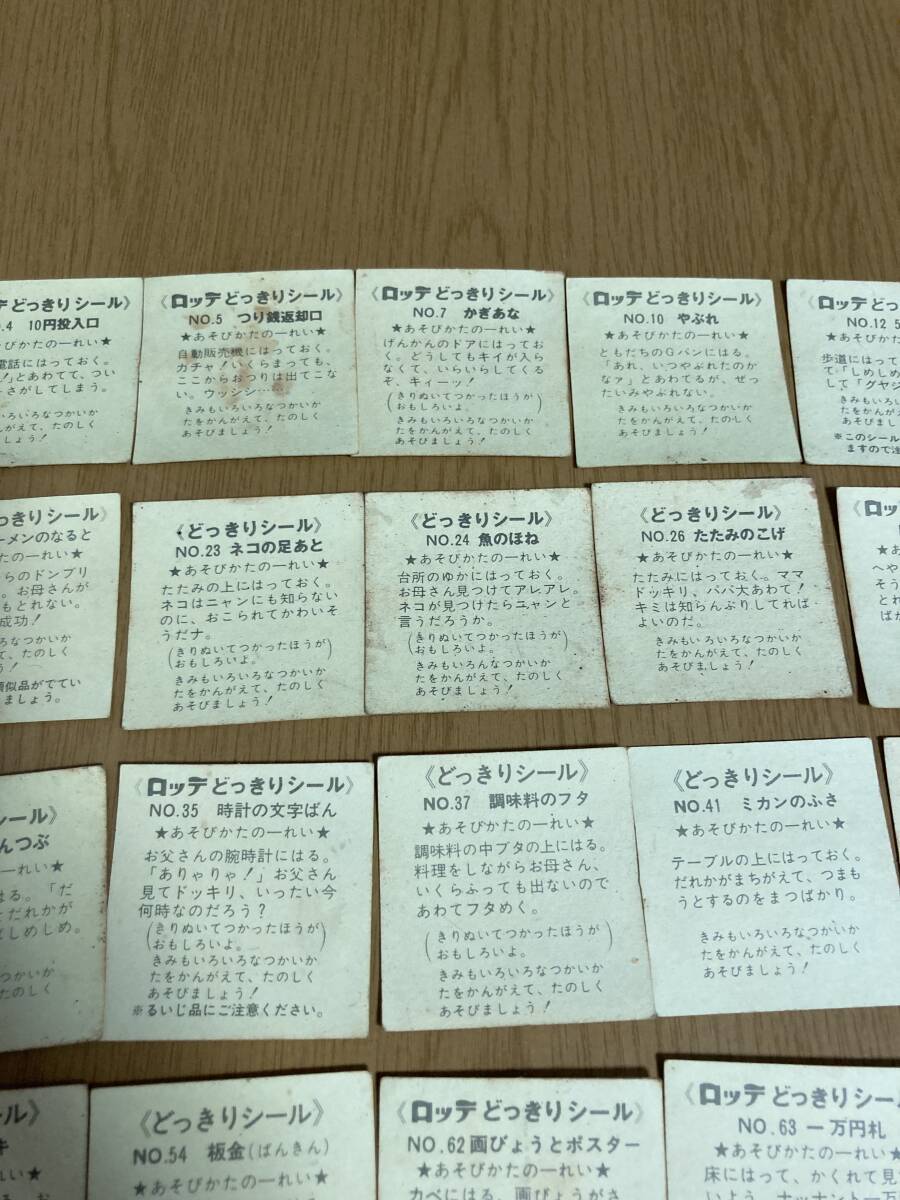 デどっきりシール》
.4 10円投入口
びかたの一れい★
電話にはっておく。
!」とあわてて、つい
ーさがしてしまう。
いろいろなつかいか
んがえて、たのしく
しょう!
《ロッテどっきりシール》
NO.5 つり銭返却口
★あそびかたの一れい★
自動販売機にはっておく。
ガチャ!いくらまっても、
ここからおつりは出てこな
い。ウッシシ……
きみもいろいろなつかいか
たをかんがえて、たのしく
あそびましょう!
《ロッテどっきりシール》
NO.7 かぎあな
★あそびかたの一れい★
げんかんのドアにはってお
く。どうしてもキイが入ら
なくて、いらいらしてくる
ぞ、キィーッ!
(きりぬいてつかったほうが
おもしろいよ。)
きみもいろいろなつかいか
たをかんがえて、たのしく
あそびましょう!
《ロッテどっきりシール》
NO.10 やぶれ
★あそびかたの一れい★
ともだちのGパンにはる。
「あれ、いつやぶれたのか
なァ」とあわてるが、ぜっ
たいみやぶれない。
きみもいろいろなつかいか
たをかんがえて、たのしく
あそびましょう!
《ロッテどっ
NO.12 5
★あそびか
歩道にはって
て「しめしめ
して「グヤジ
きみもいろいろ
たをかんがえて
あそびましょ
※このシール
ますので注
っきりシール》
ーメンのなると
たの一れい★
らのドンブリ
。お母さんが
もとれない。
成功!
ろなつかいか
て、たのしく
う!
類似品がでてい
ましょう。
《どっきりシール》
NO.23 ネコの足あと
★あそびかたの一れい★
たたみの上にはっておく。
ネコはニャンにも知らない
のに、おこられてかわいそ
うだナ。
(きりぬいてつかったほうが
おもしろいよ。)
きみもいろいろなつかいか
たをかんがえて、たのしく
あそびましょう!
《どっきりシール》
NO.24 魚のほね
★あそびかたの一れい★
台所のゆかにはっておく。
お母さん見つけてアレアレ。
ネコが見つけたらニャンと
言うだろうか。
(きりぬいてつかったほうが
おもしろいよ。)
きみもいろんなつかいか
たをかんがえて、たのしく
あそびましょう!
《どっきりシール》
NO.26 たたみのこげ
★あそびかたの一れい★
たたみにはっておく。ママ
ドッキリ、パパ大あわて!
キミは知らんぷりしてれば
よいのだ。
きみもいろいろなつかいか
たをかんがえて、たのしく
あそびましょう!
へや
そう
とれ
ばか
シール》
んつぶ
一れい★
はる。「だ
とだれかが
めしめ。
つかいか
たのしく
《ロッテどっきりシール》
NO.35 時計の文字ばん
★あそびかたの一れい★
お父さんの腕時計にはる。
「ありゃりゃ!」お父さん
見てドッキリ、いったい今
何時なのだろう?
(きりぬいてつかったほうが
おもしろいよ。)
きみもいろいろなつかいか
たをかんがえて、たのしく
あそびましょう!
※るいじ品にご注意ください。
《どっきりシール》
NO.37 調味料のフタ
★あそびかたの一れい★
調味料の中ブタの上にはる。
料理をしながらお母さん、
いくらふっても出ないので
あわてフタめく。
(きりぬいてつかったほうが
おもしろいよ。)
きみもいろいろなつかいか
たをかんがえて、たのしく
あそびましょう!
《どっきりシール》
NO.41 ミカンのふさ
★あそびかたの一れい★
テーブルの上にはっておく。
だれかがまちがえて、つまも
うとするのをまつばかり。
きみもいろいろなつかいか
たをかんがえて、たのしく
あそびましょう!
ール》
キ
い★
《どっきりシール》
NO.54 板金(ばんきん)
★あそびかたの一れい★
《ロッテどっきりシール》
NO.62 画びょうとポスター
★あそびかたの一れい★
カベにはる、画びょうがさ
《ロッテどっきりシー
NO.63 一万円札
★あそびかたの一れい
床にはって、かくれて見て